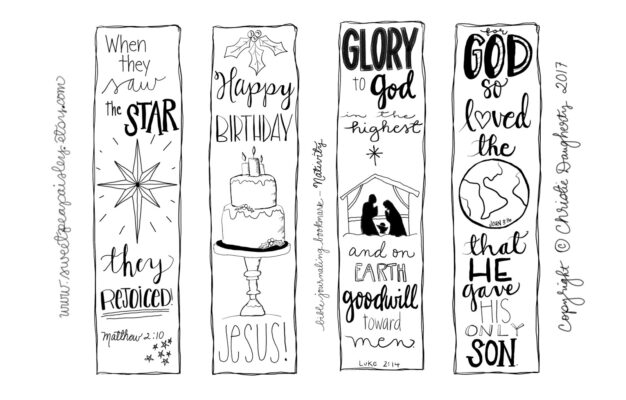 www.sweetpeapaisley.etsy.com
When
they
saw
the STAR
they
REJOICED!
Matthew 2:10
Happy
BIRTHDAY
JESUS!
bible journaling bookmark - Nativity
GLORY
to god
in the
highest
and on
EARTH
goodwill
toward
men
LUKE 2:14
for
GOD
so
loved
the
JOHN 3:16
that
HE
gave
HIS
ONLY
SON.
Copyright © Christie Daugherty 2017